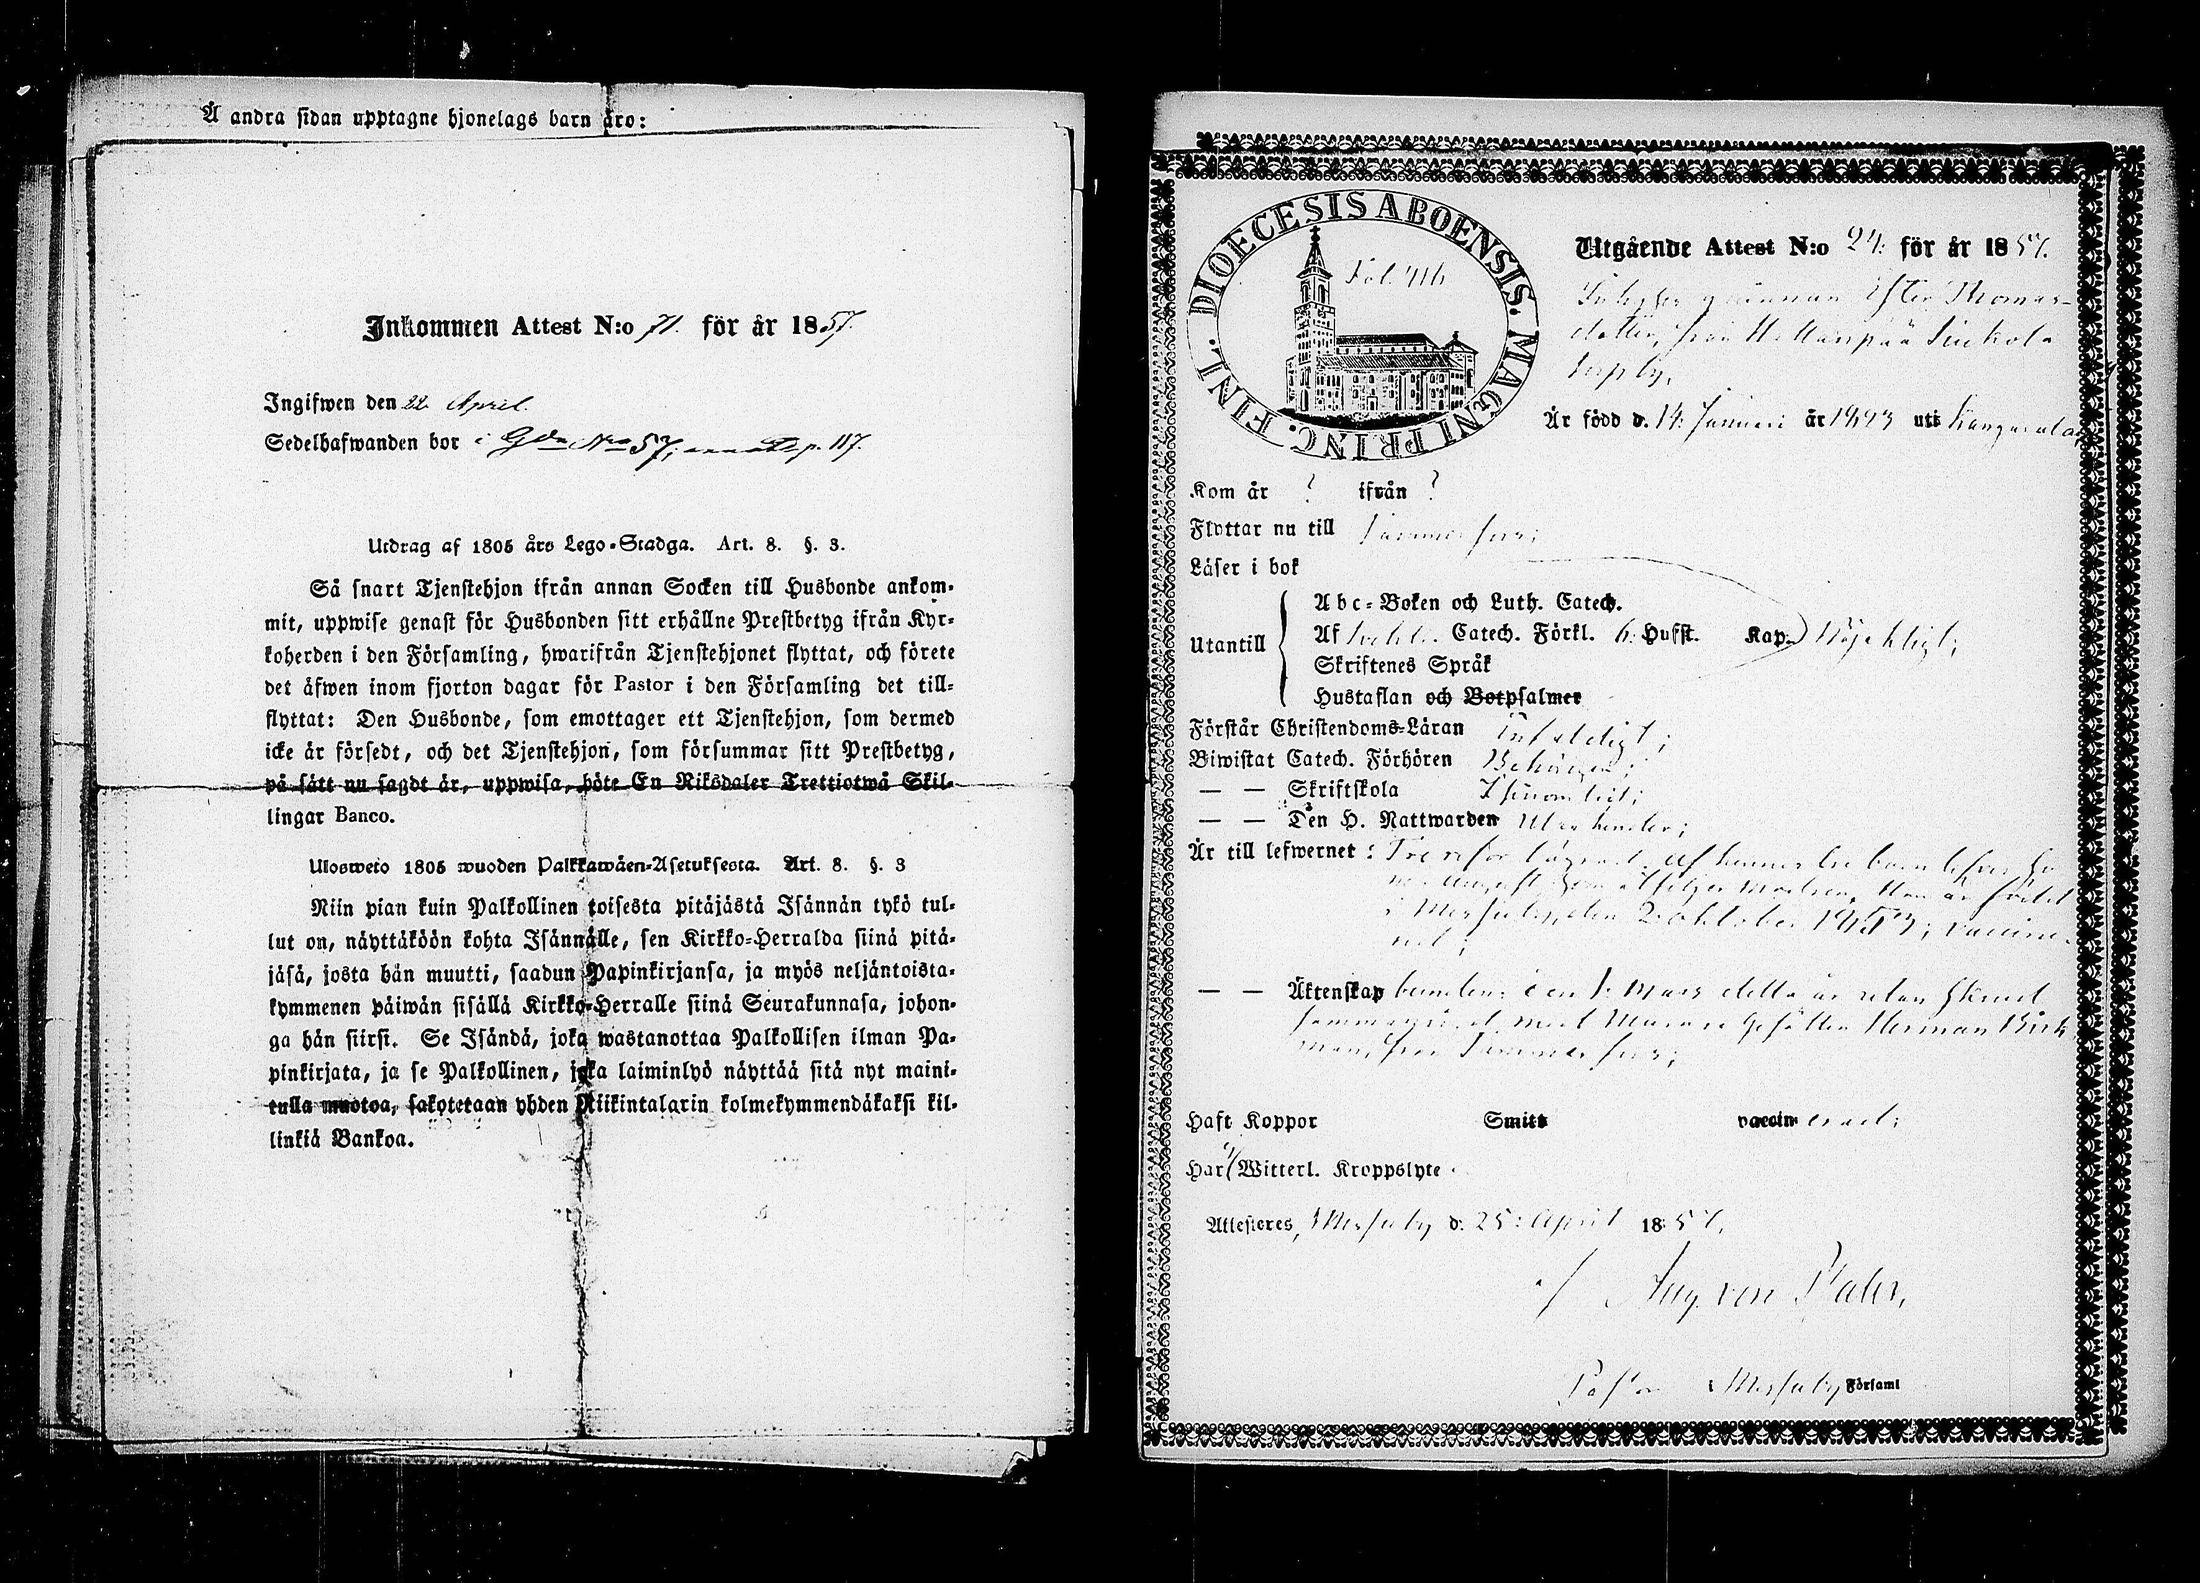 Å andra sidan upptagne hjonelags barn äro:
Inkommen Attest N:o 71. för år 1857.
Ingifwen den 22 April.
Sedelhafwanden bor i Gdn No 57; p. 117.
Utdrag af 1805 års Lego-Stadga. Art. 8. §. 3.
Så snart Tjenstehjon ifrån annan Socken till Husbonde ankom-
mit, uppwise genast för Husbonden sitt erhållne Prestbetyg ifrån Kyr-
koherden i den Församling, hwarifrån Tjenstehjonet flyttat, och förete
det äfwen inom fjorton dagar för Pastor i den Församling det till-
flyttat: Den Husbonde, som emottager ett Tjenstehjon, som dermed
icke är försedt, och det Tjenstehjon, som försummar sitt Prestbetyg,
på sätt nu sagdt är, uppwisa, böte En Riksdaler Trettiotwå Skil-
lingar Banco.
Ulosweto 1805 wuoden Palkkawäen-Asetuksesta. Art. 8. §. 3
Niin pian kuin Palkollinen toisesta pitäjästä Isännän tykö tul-
lut on, näyttäköön kohta Isännälle, sen Kirkko-Herralda siinä pitä-
jäsä, josta hän muutti, saadun Papinkirjansa, ja myös neljäntoista-
kymmenen päiwän sisällä Kirkko-Herralle siinä Seurakunnasa, johon-
ga hän siirsi. Se Isändä, joka wastanottaa Palkollisen ilman Pa-
pinkirjata, ja se Palkollinen, joka laiminlyö näyttää sitä nyt maini-
tulla muotoa, sakotetaan yhden Riikintalarin kolmekymmendäkaksi kil-
linkiä Bankoa.
DIOECESIS ABOENSIS. MAGNI PRINC. FINL.
Fol. 416
Utgående Attest N:o 24: för år 1857.
Inhyses qvinnan Ester Thomas-
dotter, från
by,
Är född d. 14: Januari år 1823 uti Kangasala
Kom år ? ifrån ?
Flyttar nu till Tammerfors;
Läser i bok
Utantill
Abc-Boken och Luth. Catech.
Af Catech. Förkl. 6: Hufst. Kap. Nöjaktigt;
Skriftenes Språk
Hustaflan och Botpsalmer
Förstår Christendoms-Läran
Biwistat Catech. Förhören Behörigen;
— — Skriftskola
— — Den H. Nattwarden
Är till lefwernet: Tre resor lägrad. Af hennes tre barn lefver
August, som åtföljer modren, Han är född
i Messuby den 2 Oktober 1853; vaccine-
rad;
— — Äktenskap den 1: Mars detta år
med Gesällen Herman
man, från Tammerfors;
Haft Koppor Smitt vaccinerad;
Har Witterl. Kroppslyte
Attesteres, Messuby d. 25: April 1857,
Aug. von Paler,
Pastor i Messuby Församl